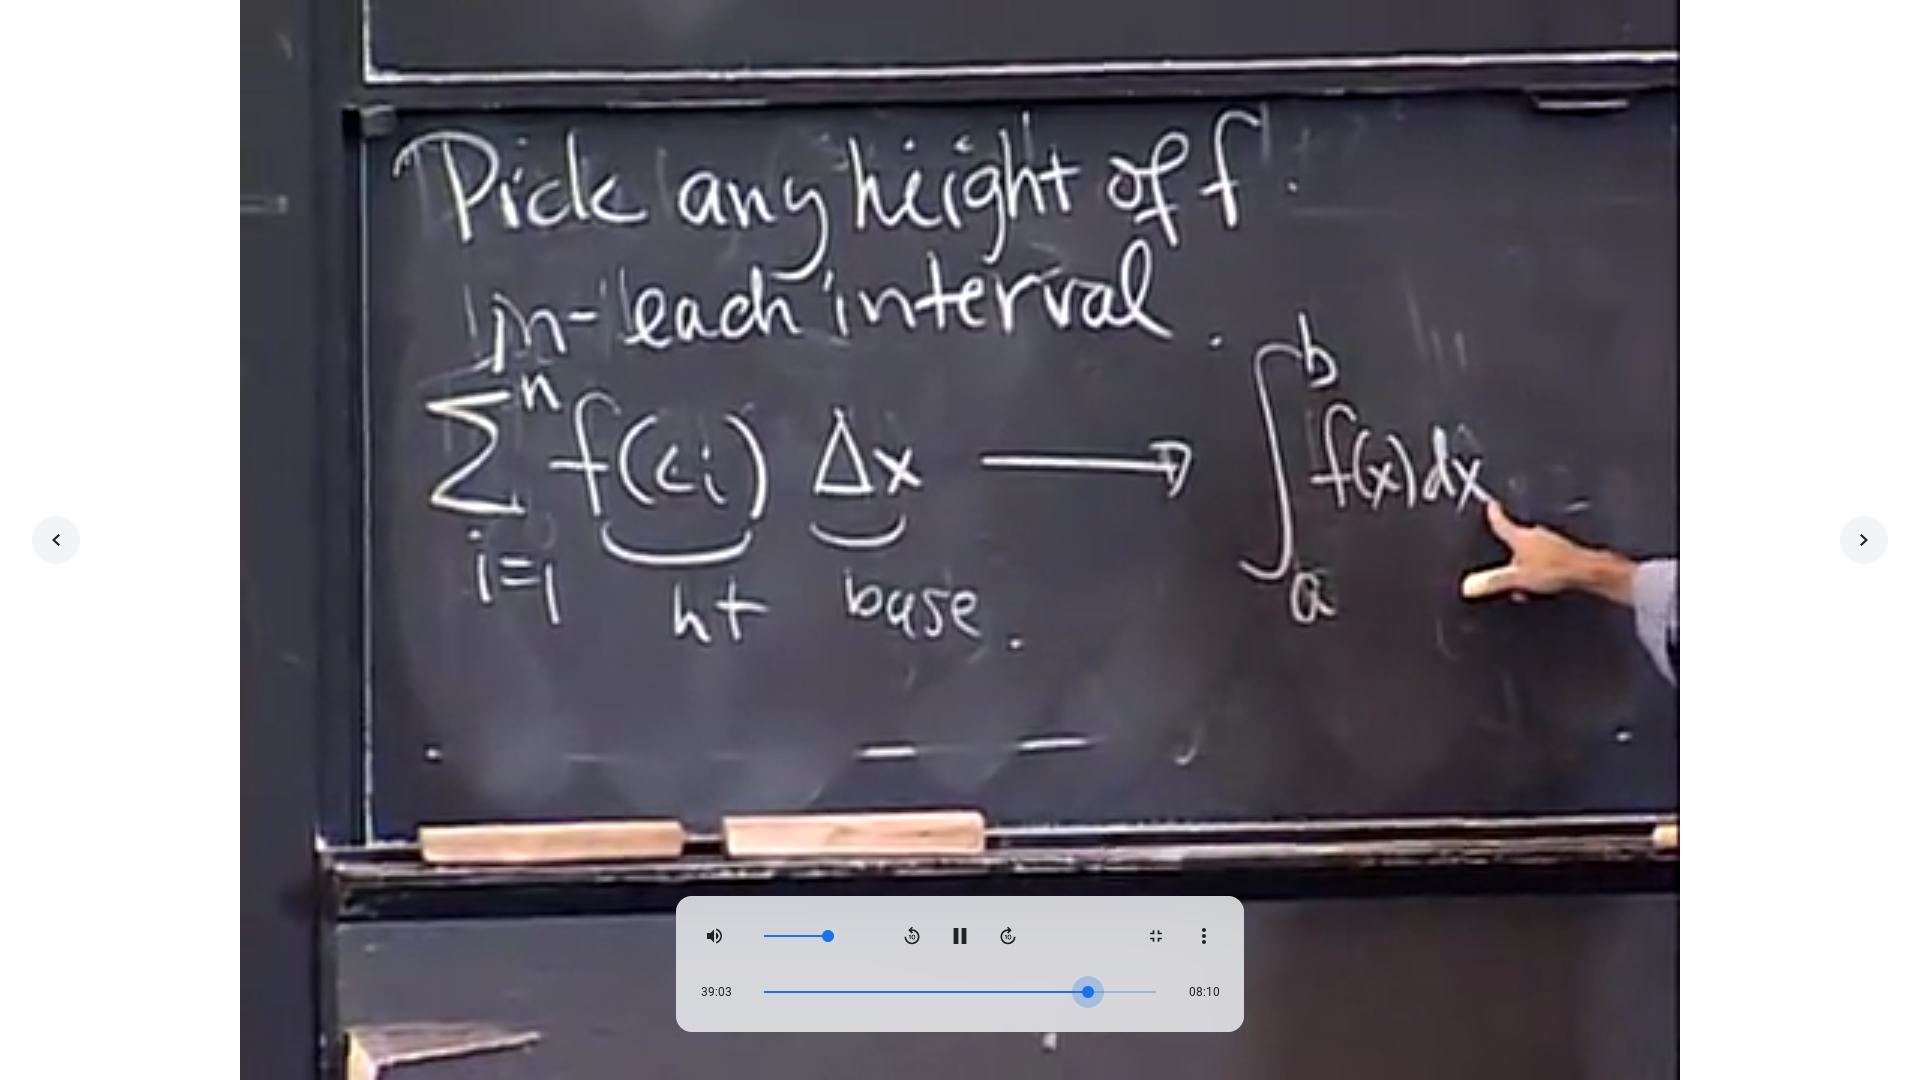 Pick any height of f
in each interval.
n
∑ f(ci) Δx → ∫ f(x)dx
i=1
b
a
ht base.
39:03 08:10
10 10